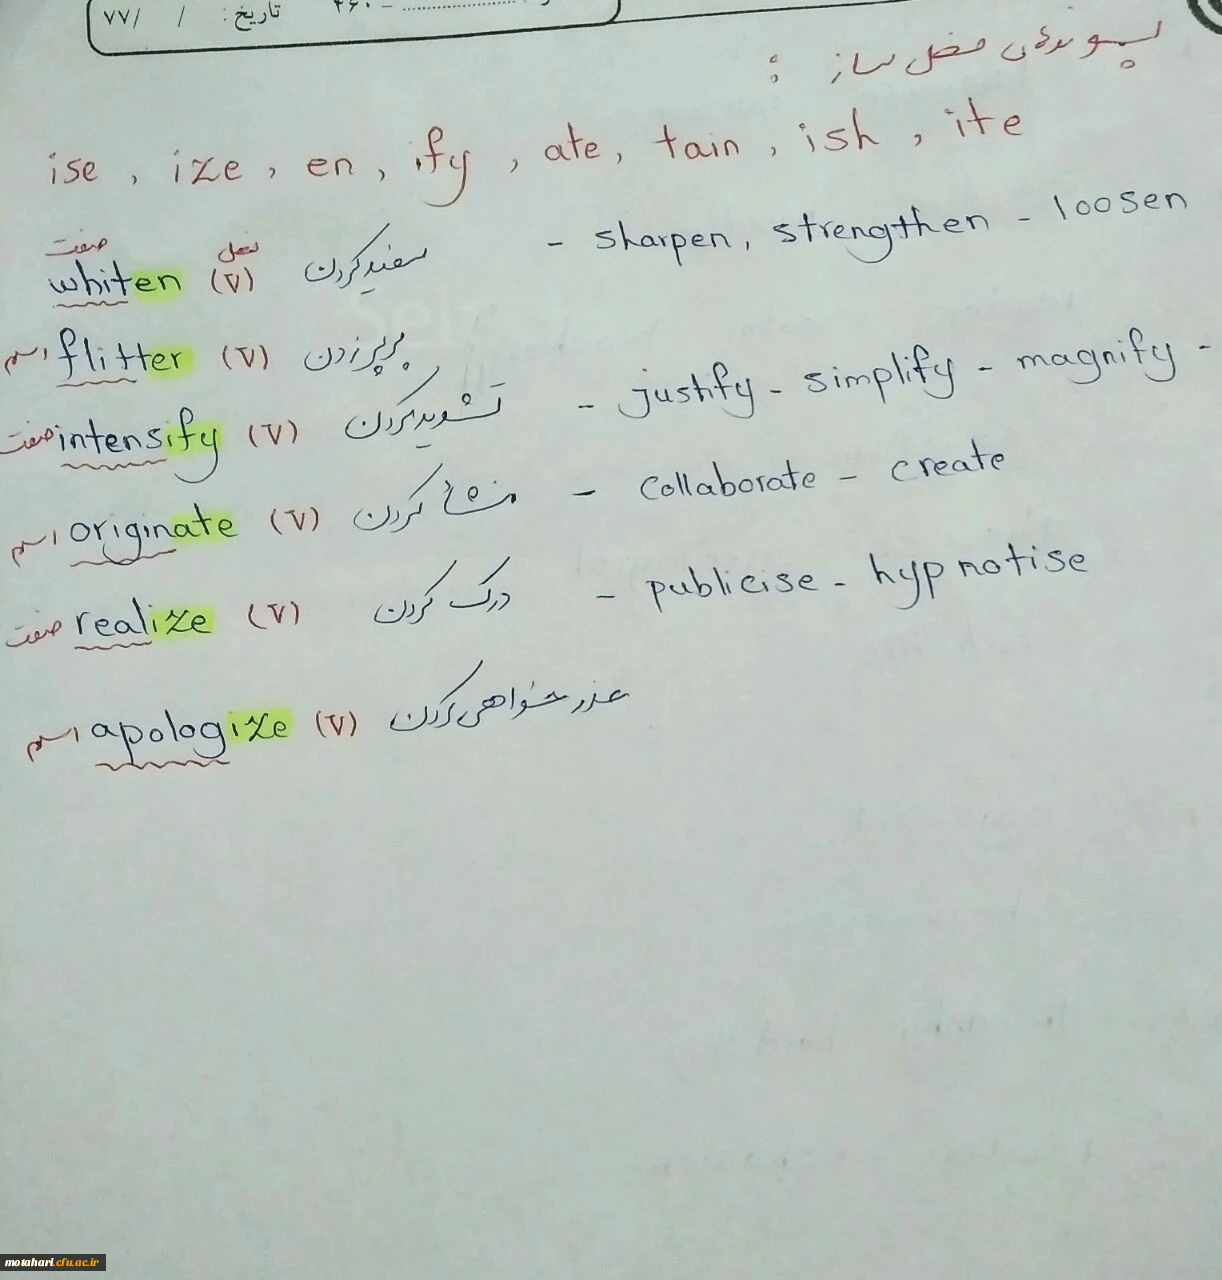 ۲۶۰ - .................... تاریخ: / /۷۷
پسوندهای فعل ساز :
ise , ize , en , ify , ate , tain , ish , ite
صفت فعل
whiten (v) سفید کردن - sharpen , strengthen - loosen
اسم flitter (v) پرپر زدن
صفت intensify (v) تشدید کردن - justify - simplify - magnify -
اسم originate (v) منشأ کردن - collaborate - create
صفت realize (v) درک کردن - publicise - hypnotise
اسم apologize (v) عذر خواهی کردن
motahari.cfu.ac.ir